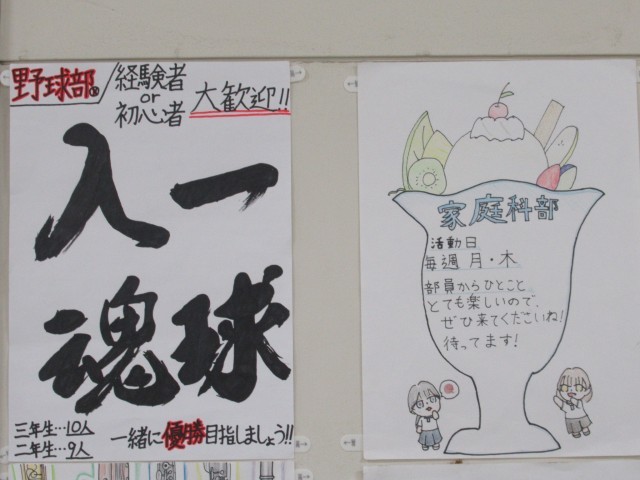 野球部
経験者
or
初心者
大歓迎!!
一球
入魂
三年生…10人
二年生…9人
一緒に優勝目指しましょう!!
家庭科部
活動日
毎週 月・木
部員からひとこと
とても楽しいので、
ぜひ来てくださいね!
待ってます!